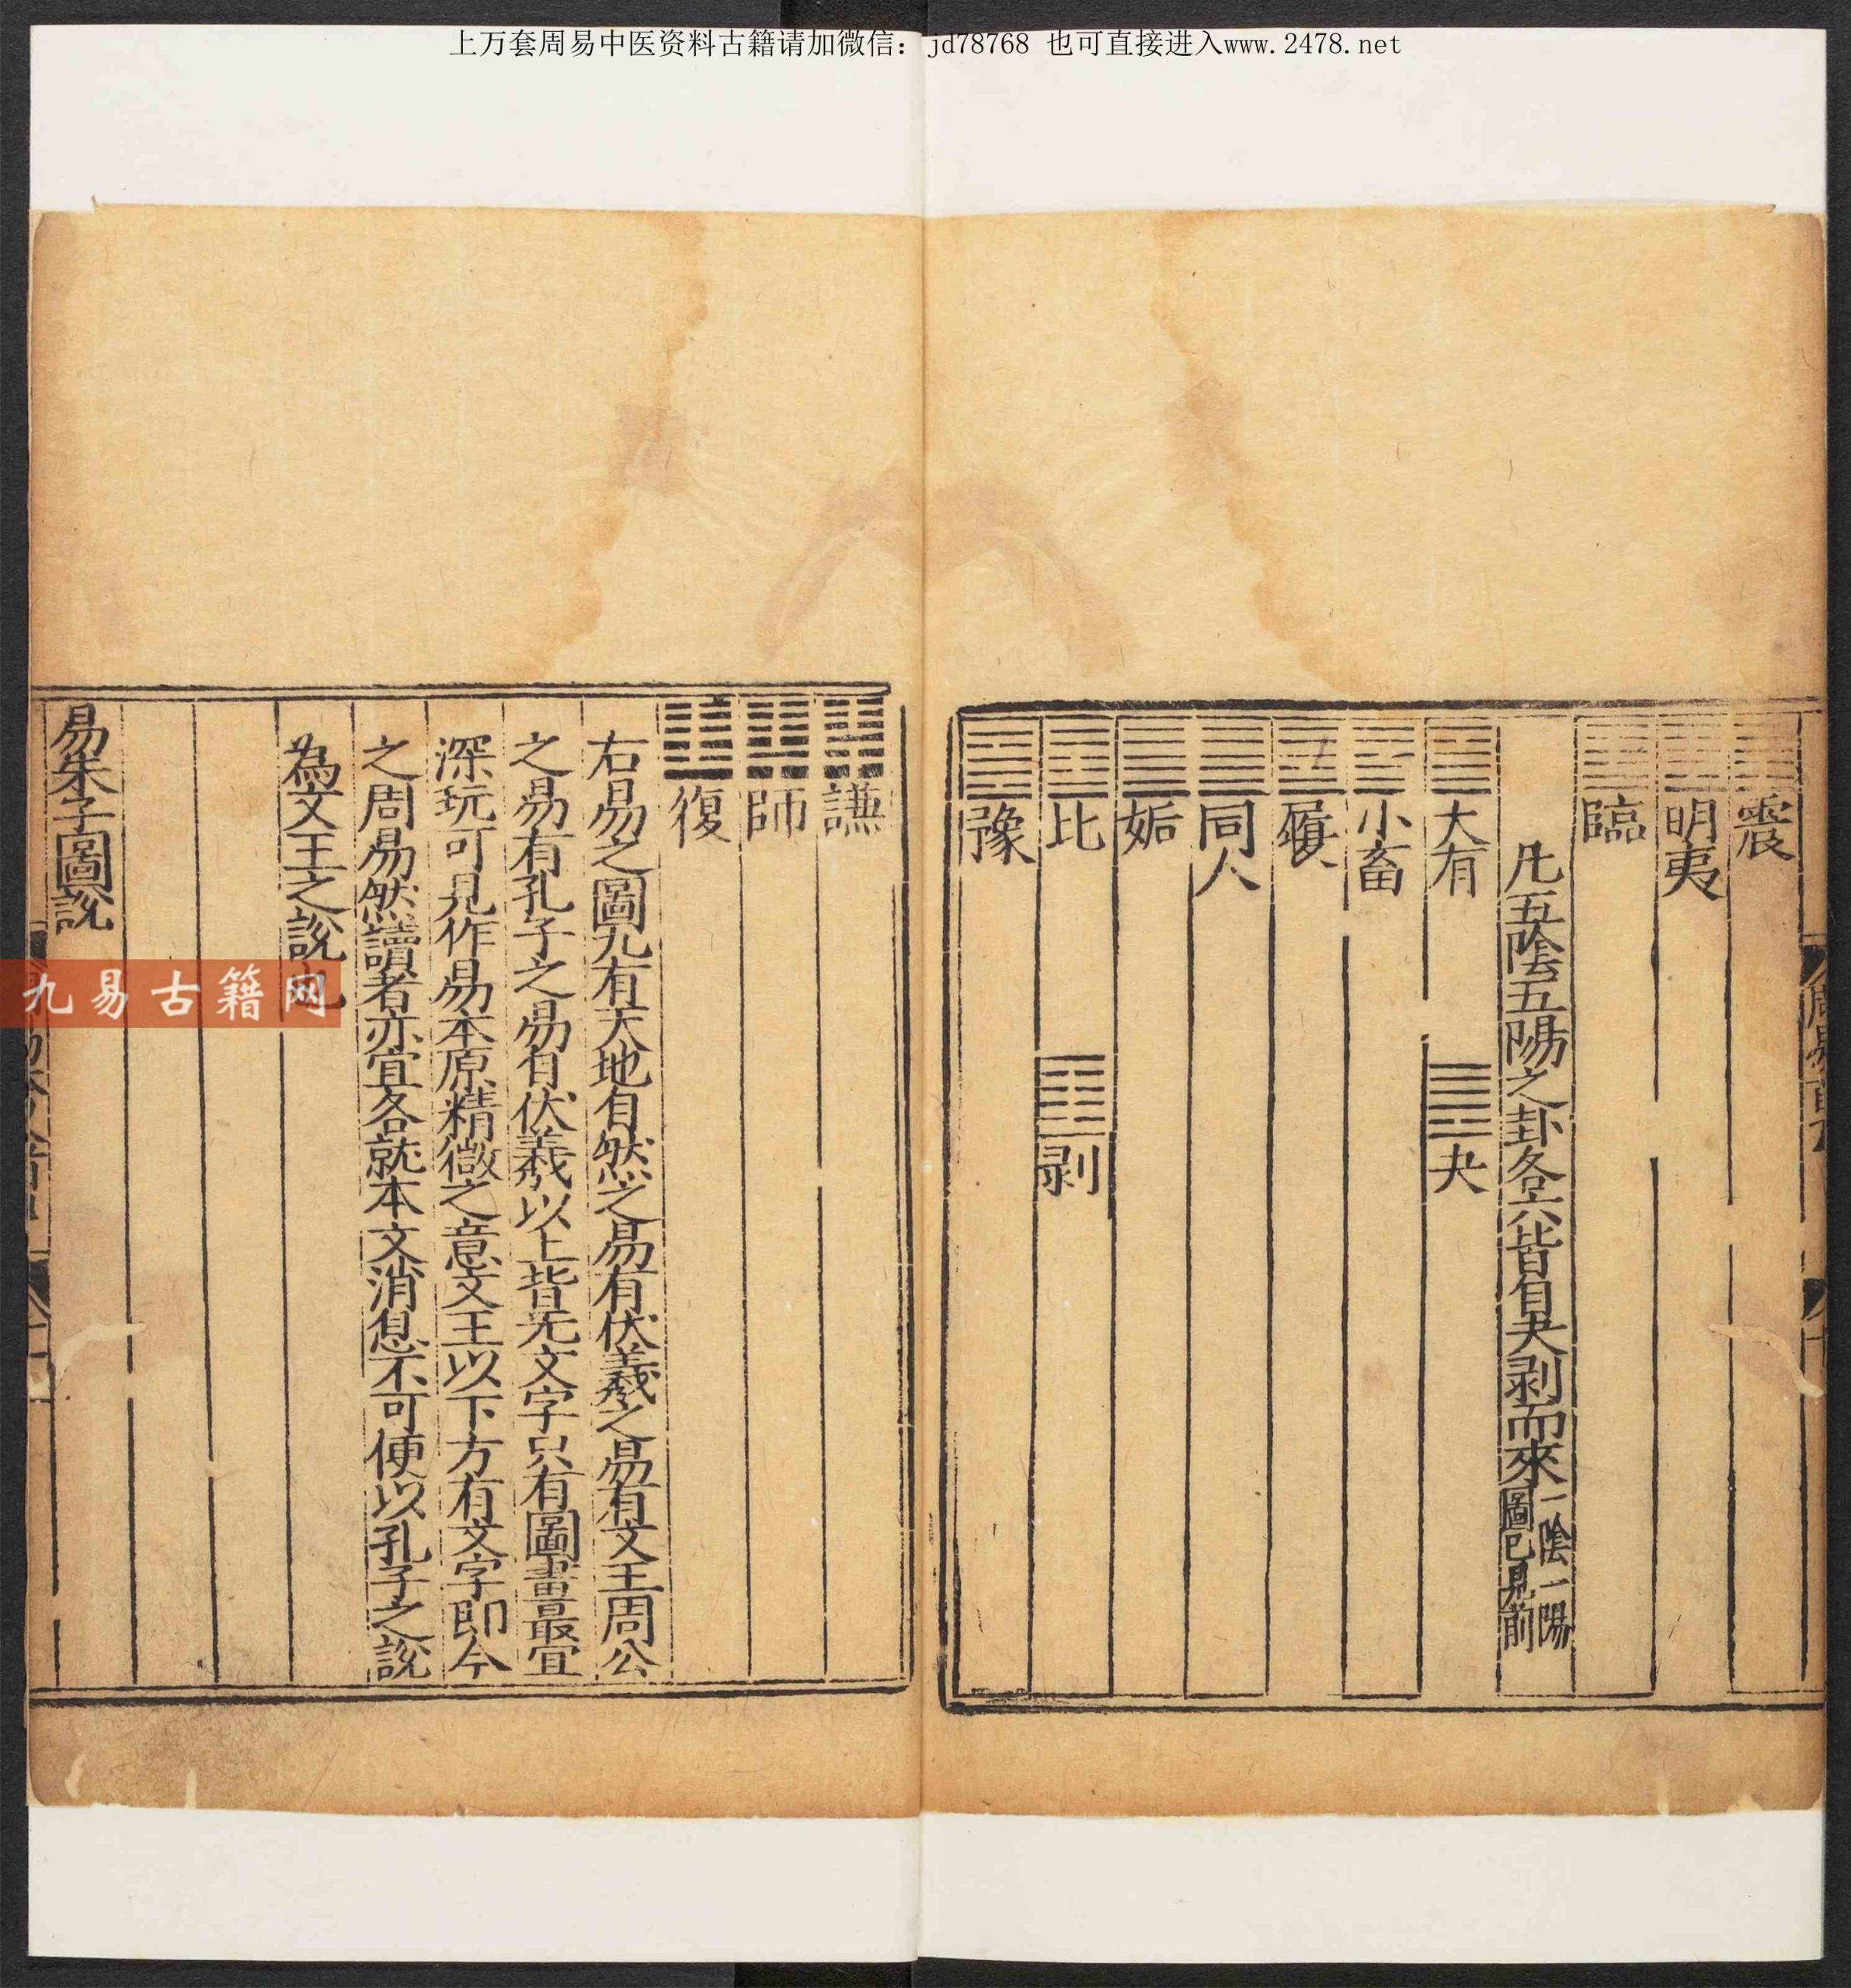 上万套周易中医资料古籍请加微信：jd78768 也可直接进入www.2478.net
震
明夷
臨
凡五陰五陽之卦各六皆自夬剥而來
一陰一陽
圖已見前
大有
夬
小畜
履
同人
姤
比
剥
豫
謙
師
復
右易之圖九有天地自然之易有伏羲之易有文王周公
之易有孔子之易自伏羲以上皆无文字只有圖畫最宜
深玩可見作易本原精微之意文王以下方有文字即今
之周易然讀者亦宜各就本文消息不可便以孔子之說
為文王之說也
易朱子圖說
九易古籍网